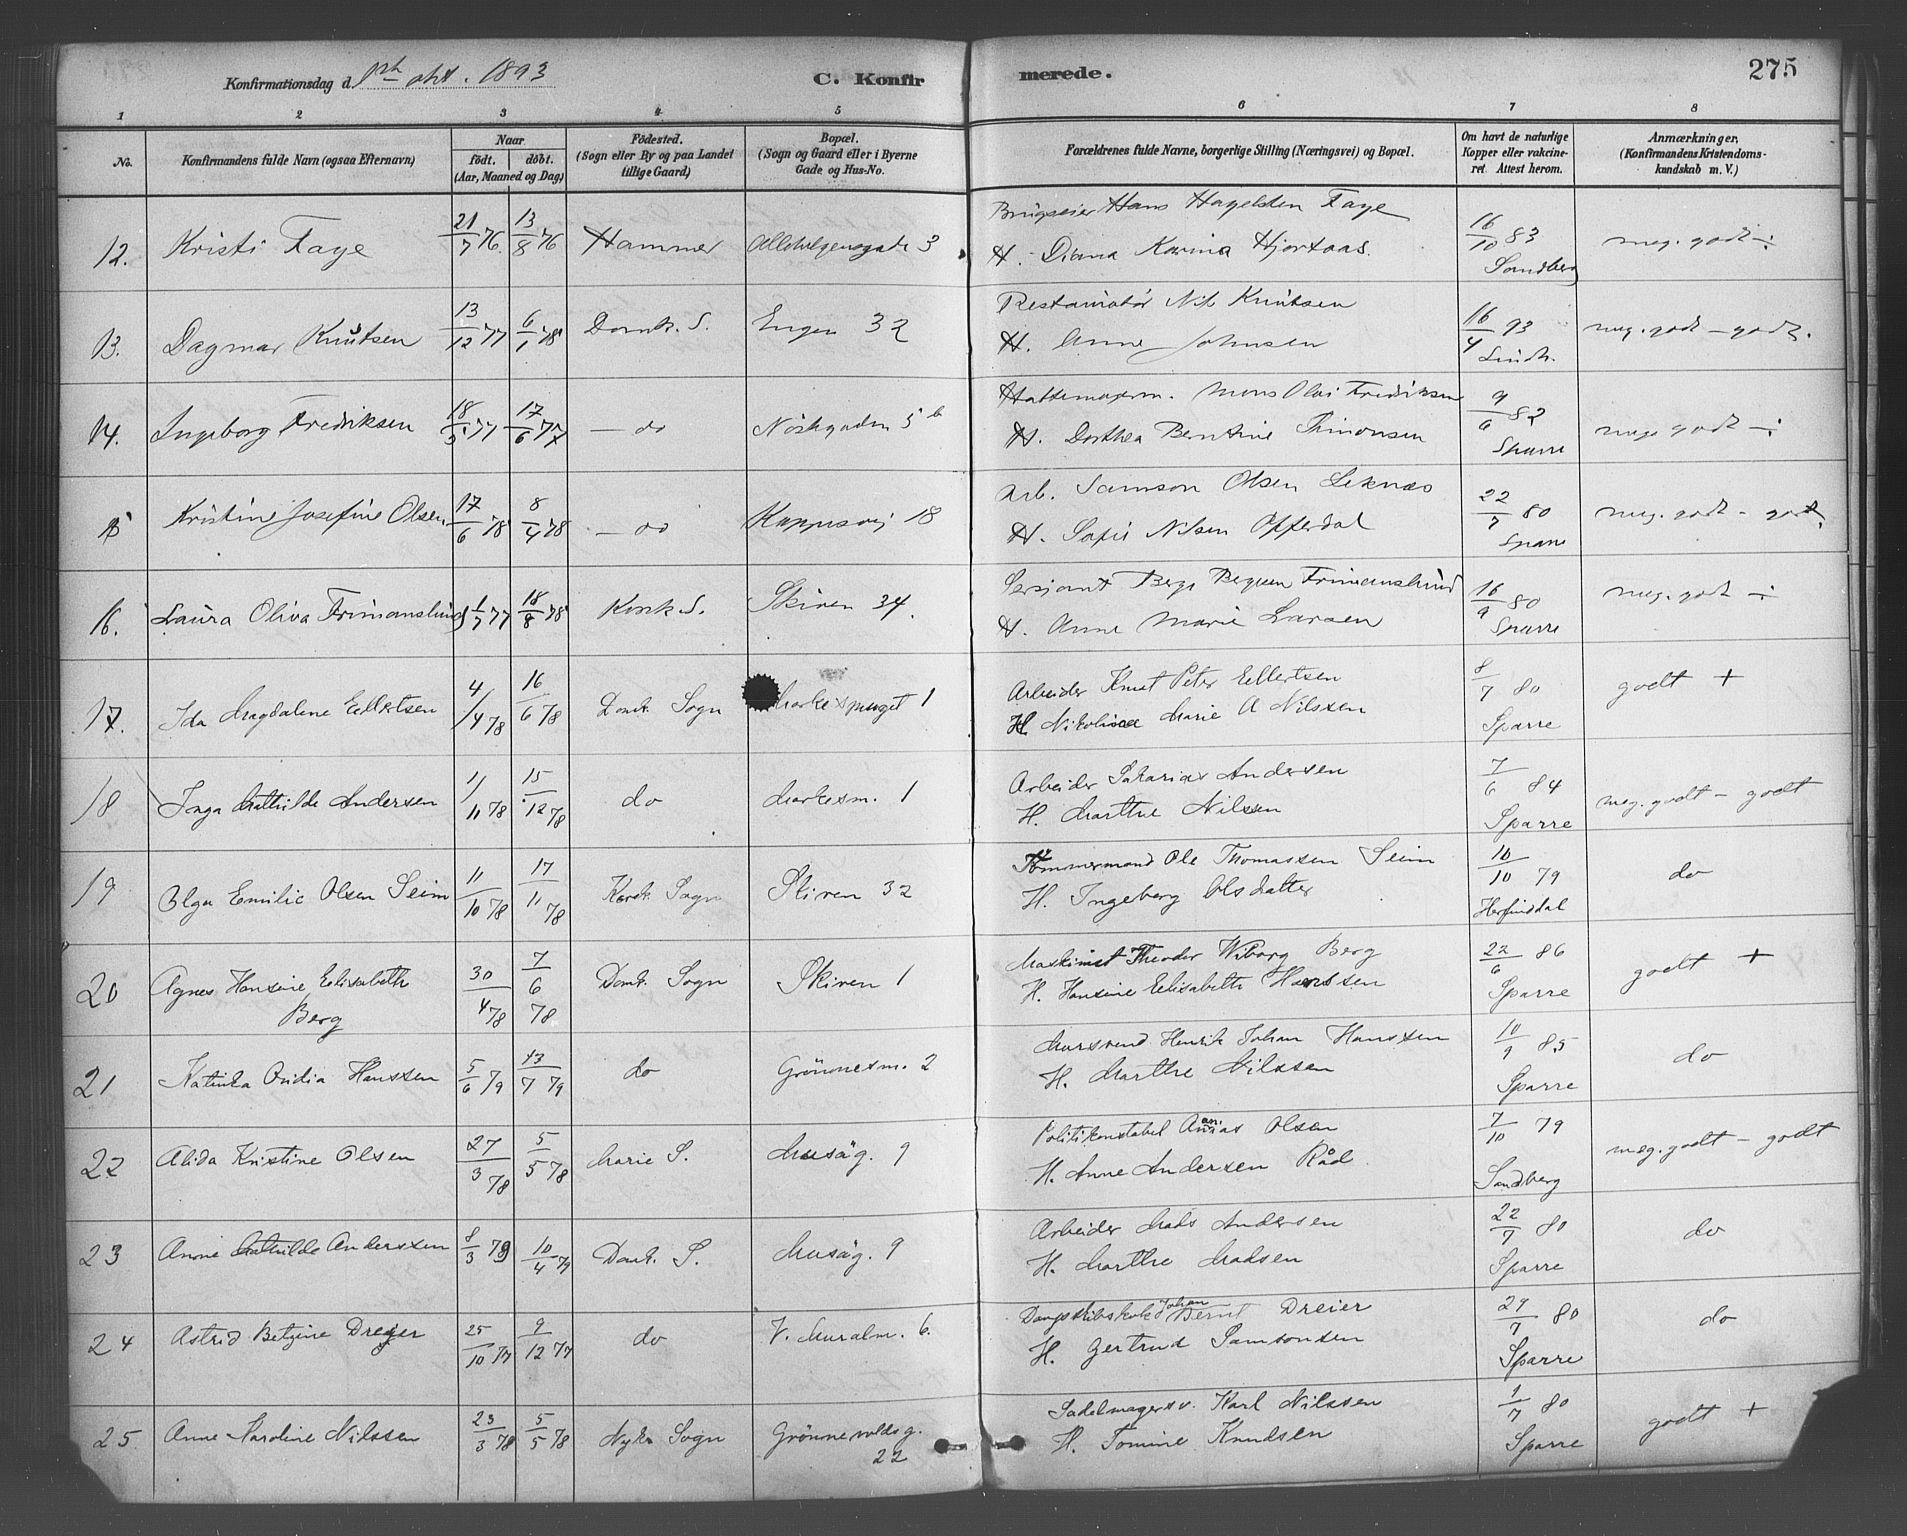 Konfirmationsdag d. 1ste okt. 1893
C. Konfirmerede.
275
1 2 3 4 5 6 7 8
No.
Konfirmandens fulde Navn (ogsaa Efternavn)
Naar
födt. döbt.
(Aar, Maaned og Dag)
Födested.
(Sogn eller By og paa Landet
tillige Gaard)
Bopæl.
(Sogn og Gaard eller i Byerne
Gade og Hus-No.
Forældrenes fulde Navne, borgerlige Stilling (Næringsvei) og Bopæl.
Om havt de naturlige
Kopper eller vakcine-
ret Attest herom.
Anmærkninger,
(Konfirmandens Kristendoms-
kundskab m. V.)
12. Kristi Faye 21/7 76 13/8 76 Hammer 3
Brugseier Hans Faye
H. Diana Karina Hjortaas.
16/10 83 Sandberg
meg. godt
13. Dagmar Knutsen 13/12 77 6/1 78 Domk. S. Engen 32
Knutsen
H. Anne Johnsen
16/4 93
meg. godt - godt.
14. Ingeborg Fredriksen 18/5 77 17/6 77 — do 5 b
Mons Olai Fredriksen
H. Dorthea Berntine Simonsen
9/6 82 Sparre
meg. godt
15 Kristine Josefine Olsen 17/6 78 8/4 78 — do 18
Arb. Samson Olsen Leknæs
H. Sofie Nilsen Offerdal
22/7 80 Sparre
meg. godt - godt.
16. Laura Oliva Frimanslund 1/7 77 18/8 78 Korsk. S. Skiven 34.
Sersjant Frimanslund
H. Anne Marie Larsen
16/9 80 Sparre
meg. godt
17. Ida Magdalene Ellertsen 4/4 78 16/6 78 Domk. Sogn 1
Arbeider Knut Peter Ellertsen
H. Nikolina Marie A Nilssen
8/7 80 Sparre
godt +
18 Inga Mathilde Andersen 1/11 78 15/12 78 do Markesm. 1
Arbeider Sakarias Andersen
H. Marthe Nilssen
7/6 84 Sparre
meg. godt - godt
19 Olga Emilie Olsen Seim 11/10 78 17/11 78 Korsk. Sogn Skiven 32
Tömmermand Ole Thomassen Seim
H. Ingeborg Olsdatter
10/10 79 Herfinddal
do
20 Agnes Hansine Elisabeth 30/4 78 7/6 78 Domk. Sogn Skiven 1
Berg
Maskinist Theodor Wiborg Berg
H. Hansine Elisabeth Hanssen
22/6 86 Sparre
godt +
21 Katinka Ovidia Hanssen 5/6 79 13/7 79 do Grönnesm. 2
Mursvend Henrik Johan Hanssen
H. Marthe Nilssen
10/9 85 Sparre
do
22 Alida Kristine Olsen 27/3 78 5/5 78 Marie S. Museg. 9
Politikonstabel Olsen
H. Anne Andersen Råd
7/10 79 Sandberg
meg. godt - godt
23 Anne Mathilde Anderssen 8/3 79 10/4 79 Domk. S. Museg. 9
Arbeider Mads Andersen
H. Marthe Madsen
22/7 80 Sparre
do
24 Astrid Betzine Dreyer 25/10 77 9/12 77 do V. Muralm. 6.
Dampskibskok Johan Bernt Dreier
H. Gertrud Samsonsen
29/7 80 Sparre
do
25. Anne Karoline Nilssen 23/3 78 5/5 78 Nyk. Sogn Grönnevoldsg.
22
Sadelmagersv. Karl Nilssen
H. Tomine Knudsen
1/7 80 Sparre
godt +